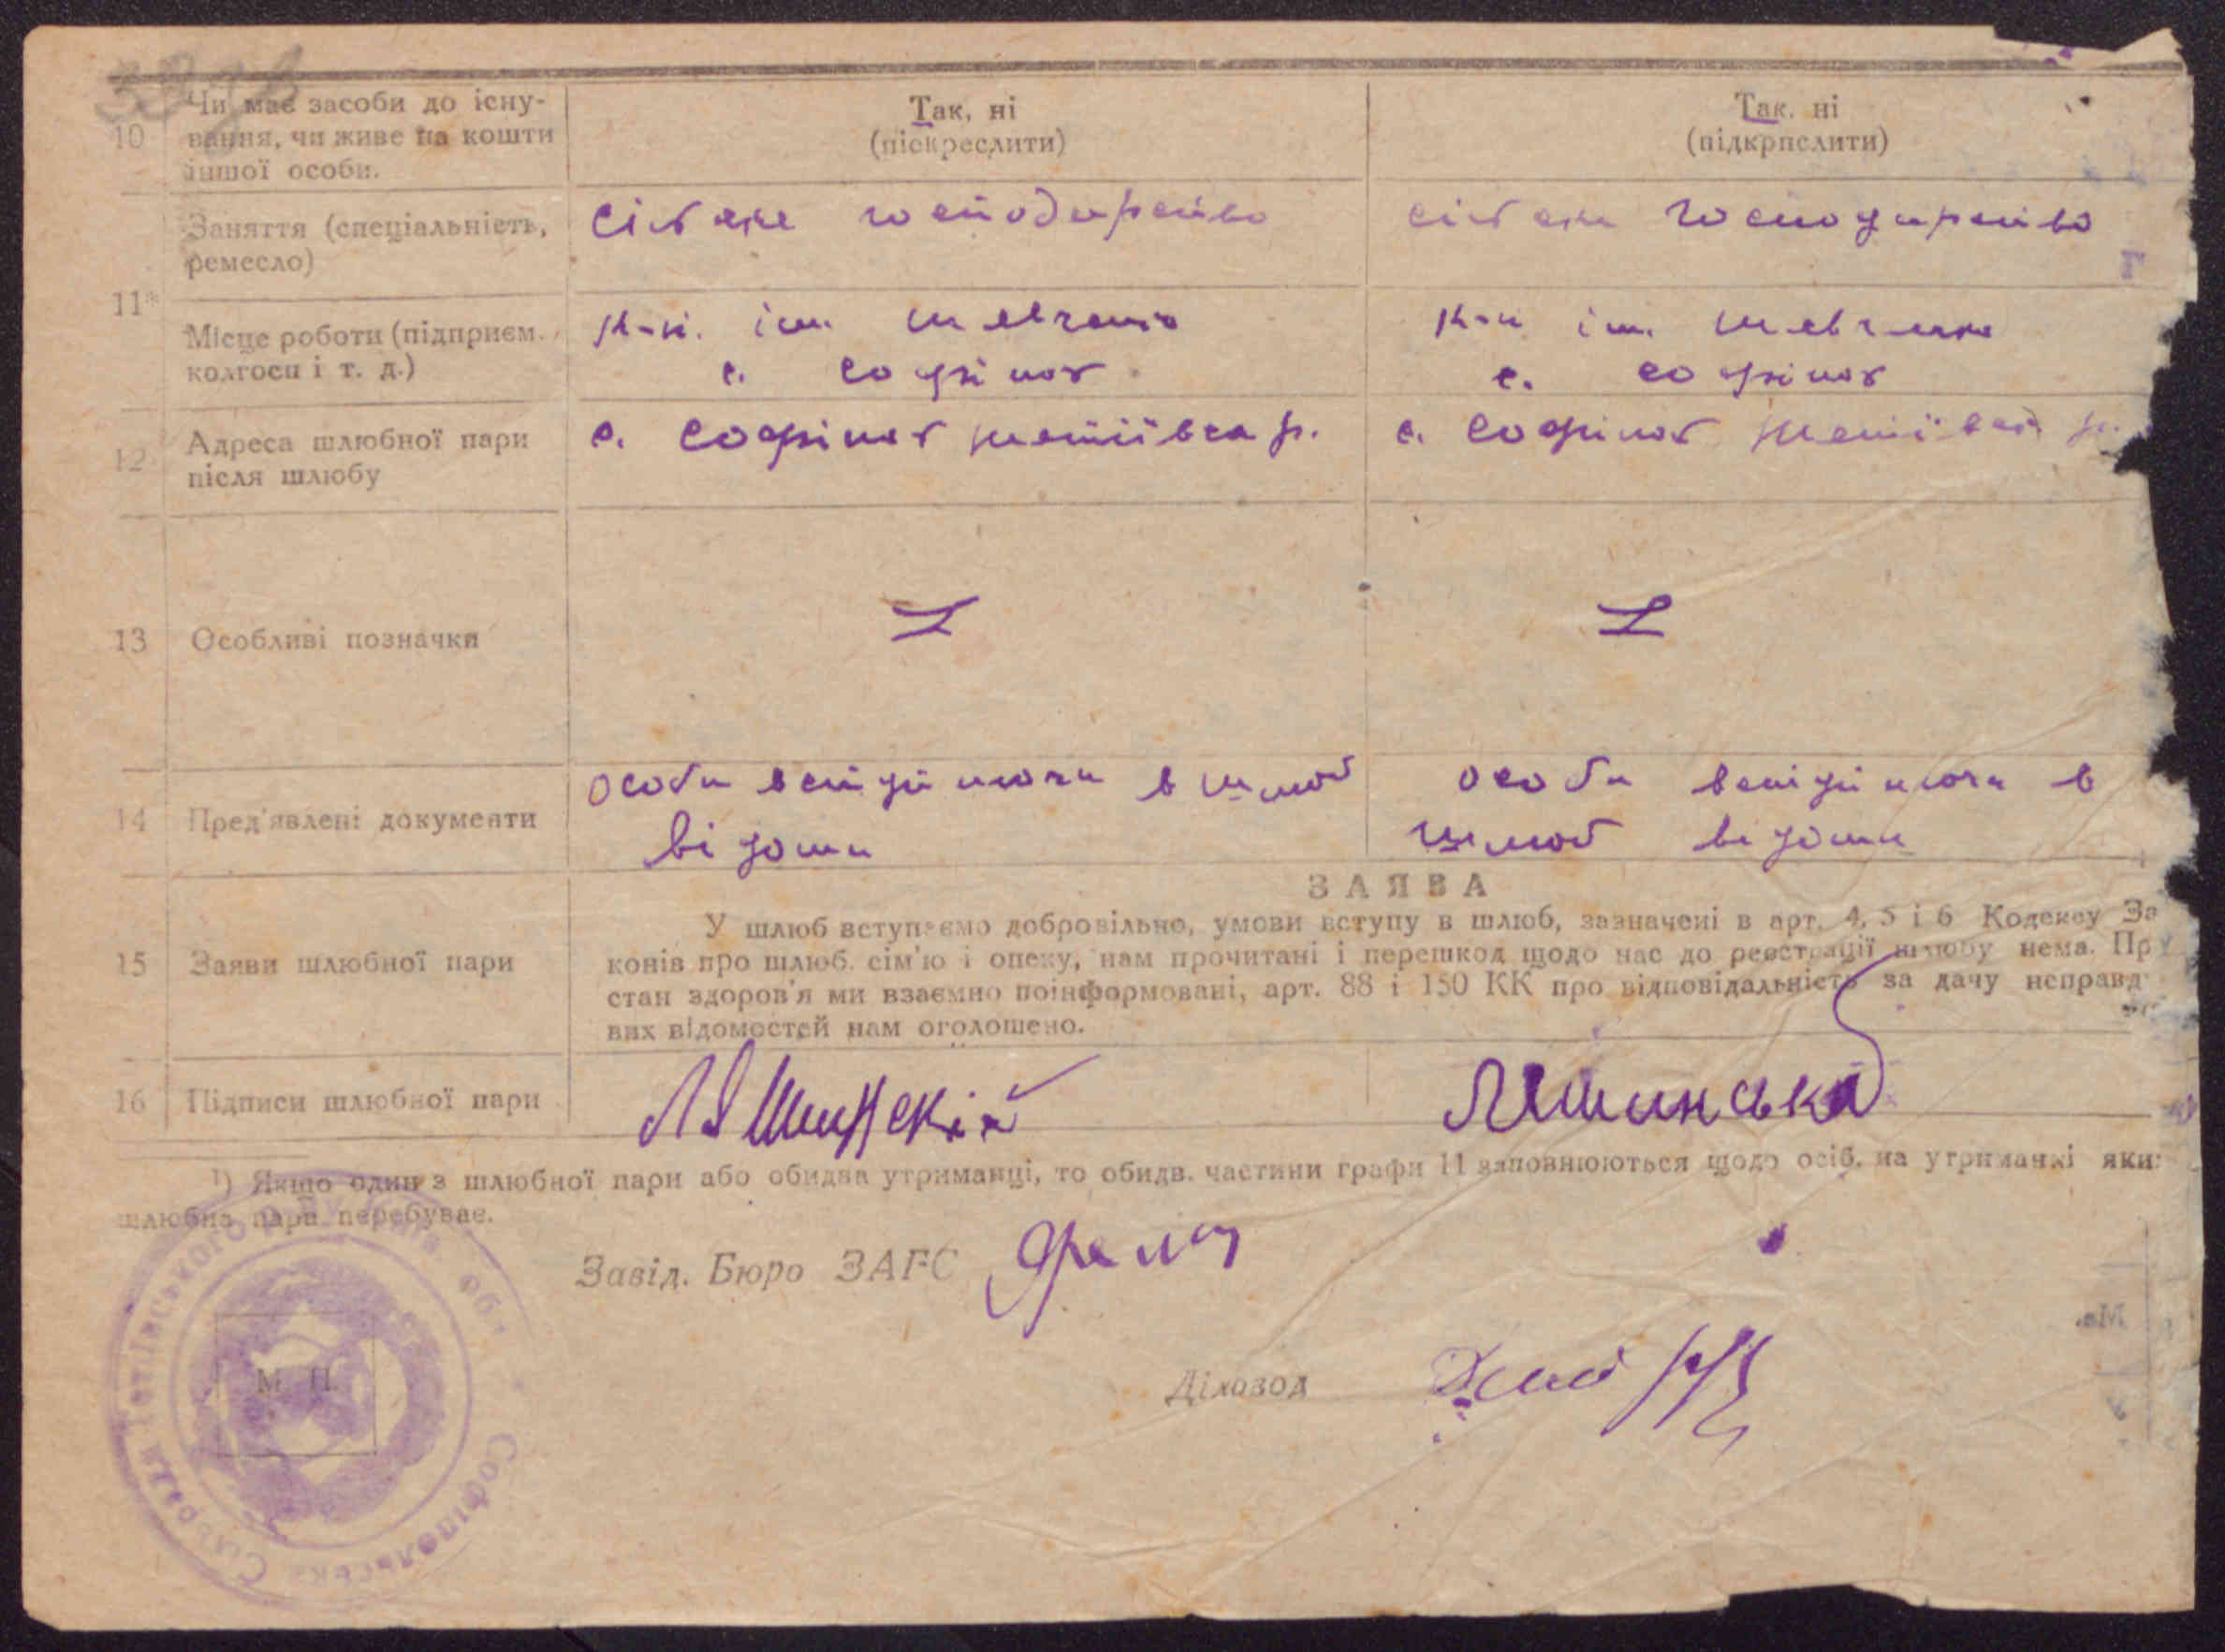 10
Чи має засоби до існу-
вання, чи живе на кошти
іншої особи.
Так, ні
(піскреслити)
Так, ні
(підкрпслити)
11*
Заняття (спеціальність,
ремесло)
сільське господарство
сільське господарство
Місце роботи (підприєм.
колгосп і т. д.)
к-п. ім. Шевченко
с. Софіпол
к-п ім. Шевченко
с. Софіпол
12
Адреса шлюбної пари
після шлюбу
с. Софіпол Тетіївск р.
с. Софіпол Тетіївск р.
13
Особливі позначки
14
Пред'явлені документи
особи вступаючи в шлюб
відоми
особи вступаючи в
шлюб відоми
15
Заяви шлюбної пари
ЗАЯВА
У шлюб вступаємо добровільно, умови вступу в шлюб, зазначені в арт. 4, 5 і 6 Кодексу За
конів про шлюб. сім'ю і опеку, нам прочитані і перешкод щодо нас до реєстрації шлюбу нема. Пр
стан здоров'я ми взаємно поінформовані, арт. 88 і 150 КК про відповідальність за дачу неправд
вих відомостей нам оголошено.
16
Підписи шлюбної пари
Ляшинскій
Лішинська
¹) Якщо один з шлюбної пари або обидва утриманці, то обидв. частини графи 11 заповнюються щодо осіб, на утриманні яких
шлюбна пара перебуває.
Завід. Бюро ЗАГС
Діловод
М. П.
Софіпольська Сільрада Тетіївського обл.